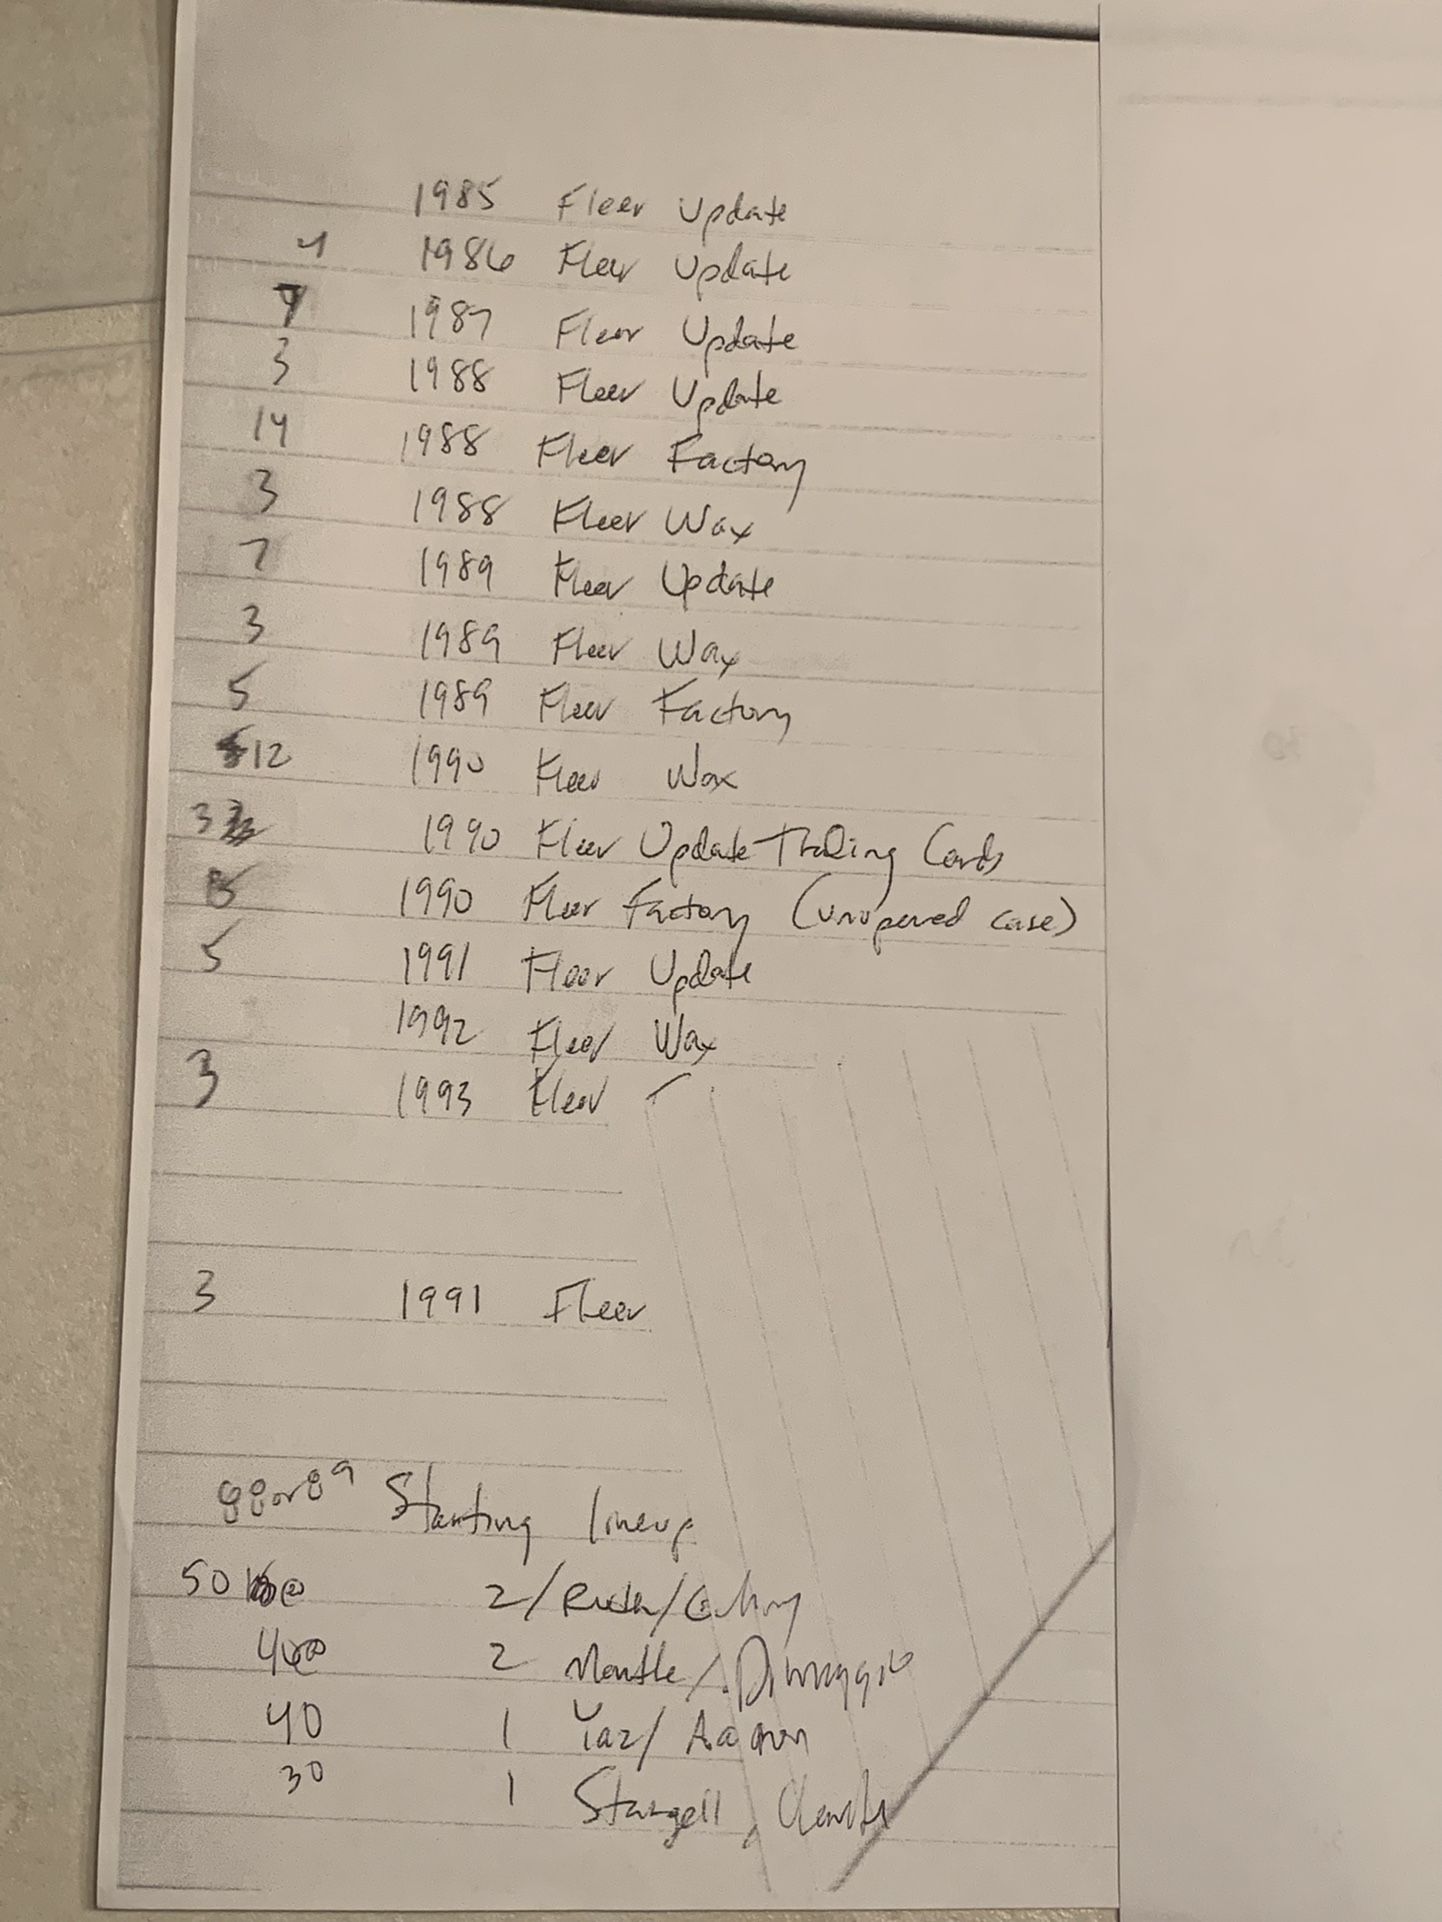 1985 Fleer Update
4 1986 Fleer Update
7 1987 Fleer Update
3 1988 Fleer Update
14 1988 Fleer Factory
3 1988 Fleer Wax
7 1989 Fleer Update
3 1989 Fleer Wax
5 1989 Fleer Factory
12 1990 Fleer Wax
3 1990 Fleer Update Trading Cards
1990 Fleer Factory (unopened case)
5 1991 Fleer Update
1992 Fleer Wax
3 1993 Fleer
3 1991 Fleer
88 or 89 Starting lineup
50 2/Ruth/Gehrig
2 Mantle/Dimaggio
40 1 Yaz/Aaron
30 1 Stargell,